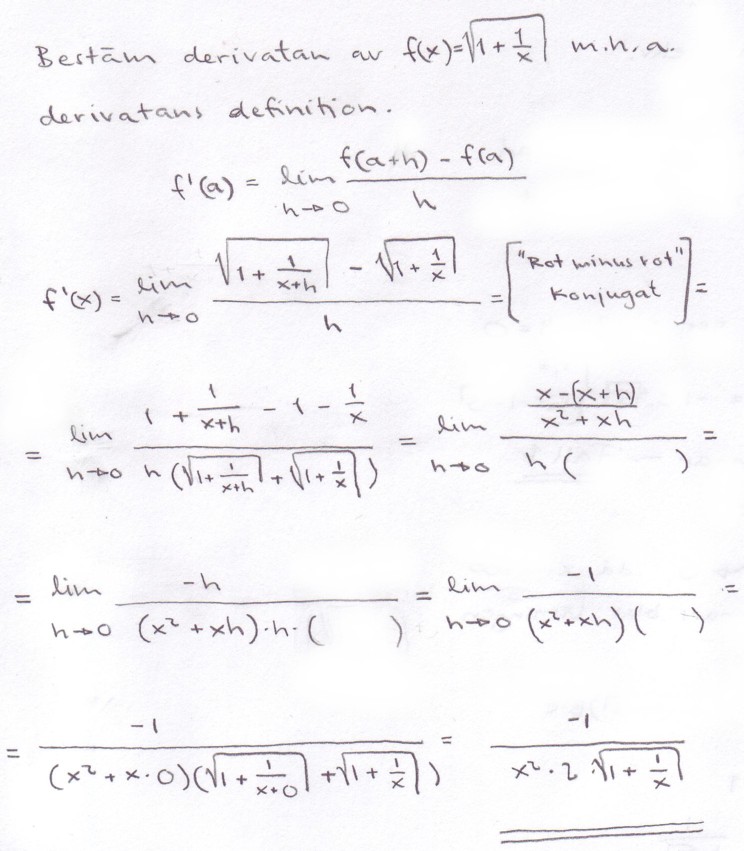 Bestäm derivatan av f(x)=√(1 + 1/x) m.h.a.
derivatans definition.
f'(a) = lim h→0 (f(a+h) - f(a))/h
f'(x) = lim h→0 (√(1 + 1/(x+h)) - √(1 + 1/x))/h = ["Rot minus rot" Konjugat] =
= lim h→0 (1 + 1/(x+h) - 1 - 1/x)/(h(√(1 + 1/(x+h)) + √(1 + 1/x))) = lim h→0 ((x-(x+h))/(x² + xh))/(h( )) =
= lim h→0 -h/((x² + xh)·h·( )) = lim h→0 -1/((x² + xh)( )) =
= -1/((x² + x·0)(√(1 + 1/(x+0)) + √(1 + 1/x))) = -1/(x²·2·√(1 + 1/x))